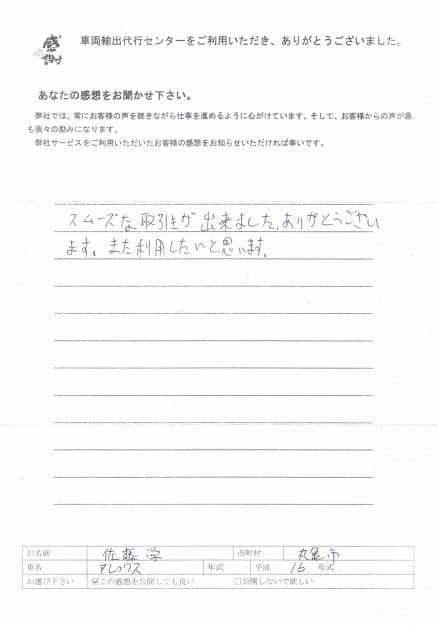 感謝
車両輸出代行センターをご利用いただき、ありがとうございました。
あなたの感想をお聞かせ下さい。
弊社では、常にお客様の声を聴きながら仕事を進めるように心がけています。そして、お客様からの声が最
も我々の励みになります。
弊社サービスをご利用いただいたお客様の感想をお知らせいただければ幸いです。
スムーズな取引が出来ました。ありがとうござい
ます。また利用したいと思います。
お名前 佐藤 学 市町村 丸亀市
車名 アレックス 年式 平成 16 年式
お選び下さい ☑この感想を公開しても良い □公開しないで欲しい